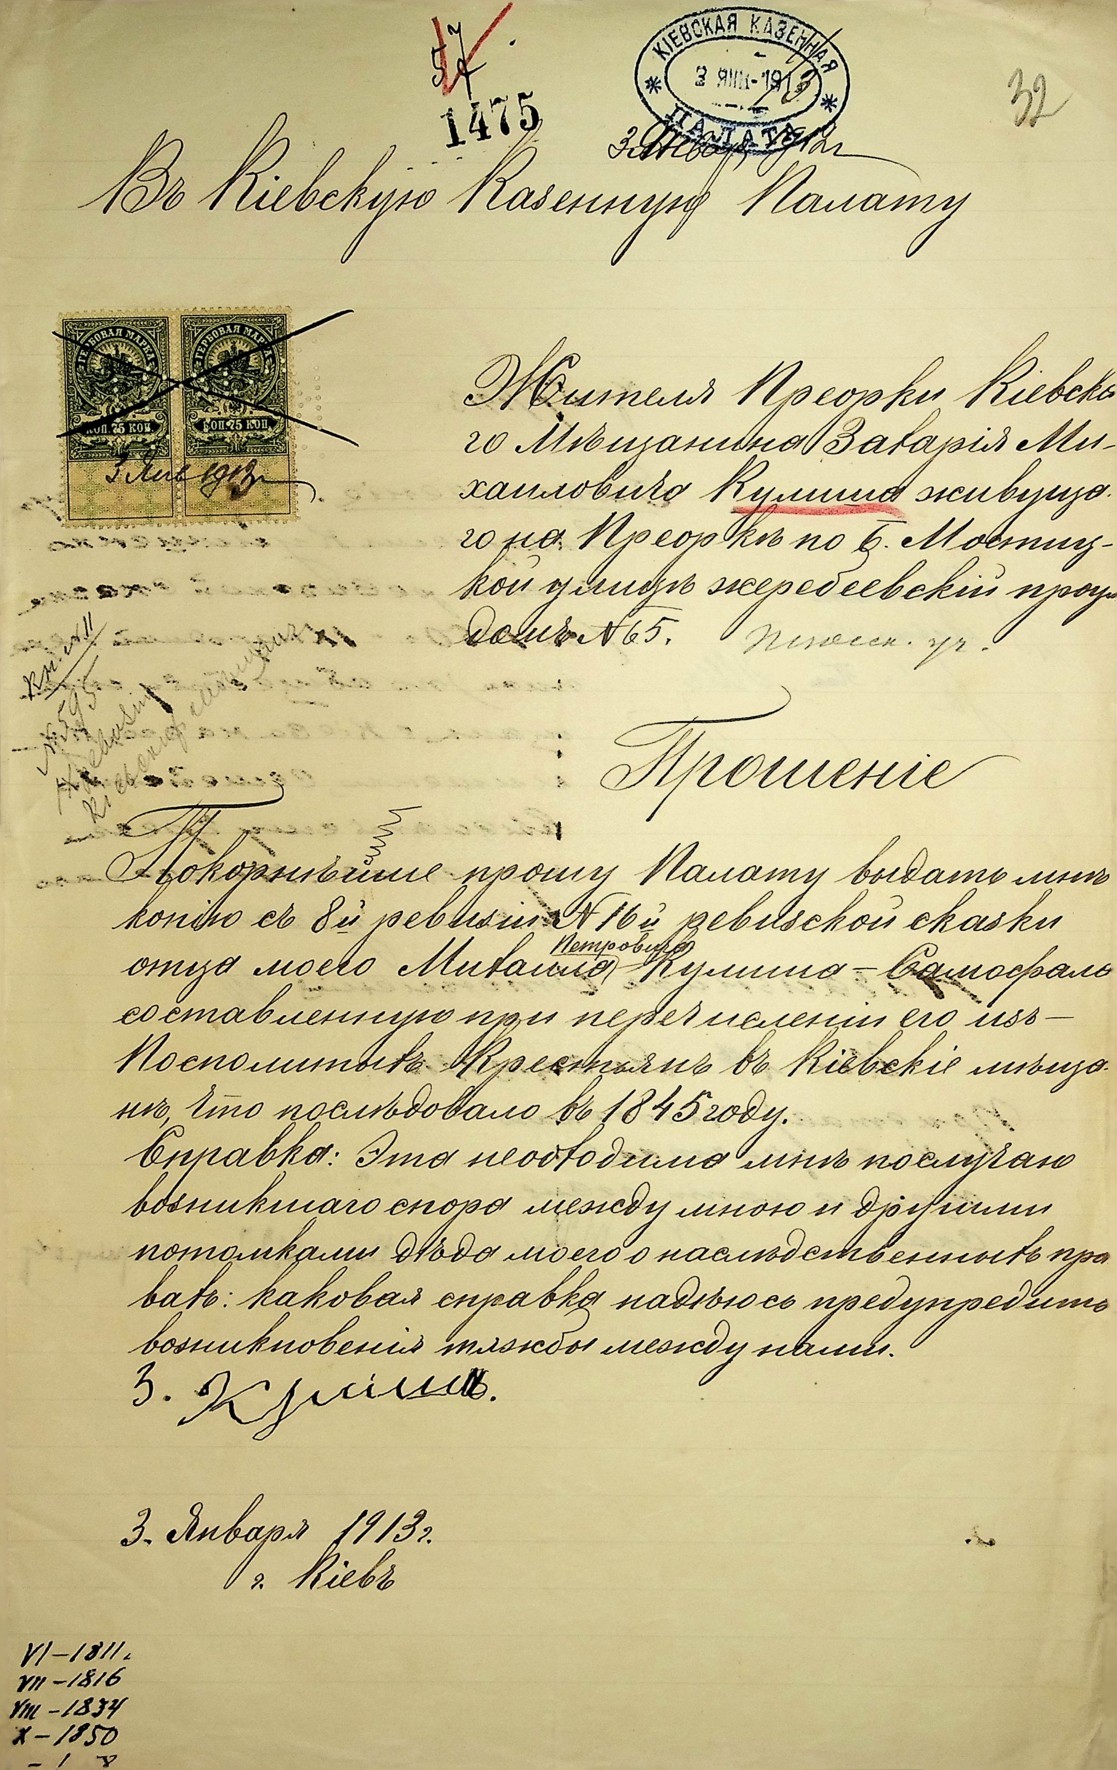 57
1475
КІЕВСКАЯ КАЗЕННАЯ
3 ЯНВ-1913
ПАЛАТА
32
Въ Кіевскую Казенную Палату
ГЕРБОВАЯ МАРКА ГЕРБОВАЯ МАРКА
КОП. 75 КОП. КОП. 75 КОП.
3 Янв 1913г
Жителя Преорки Кіевска
го Мѣщанина Захарія Ми-
хаиловича Кулиша живуща
го на Преоркѣ по Б. Мостиц-
кой улицѣ жеребеевскій проул
домъ №65.
Плоск. уч.
Кн. №11
№595
Прошеніе
Покорнѣйше прошу Палату выдать мнѣ
копію съ 8й ревизіи №16й ревизской сказки
Петровича
отца моего Михаила Кулиша – Самофала
составленную при перечисленіи его изъ –
Посполитыхъ Крестьянъ въ Кіевскіе мѣща
нѣ, что послѣдовало въ 1845 году.
Справка: Эта необходима мнѣ послучаю
возникшаго спора между мною и другими
потомками дѣда моего о наслѣдственныхъ пра
вахъ: каковая справка надѣюсь предупредитъ
возникновенія тяжбы между нами.
З. Кулишъ.
3. Января 1913г.
г. Кіевъ
VI – 1811.
VII – 1816
VIII – 1834
X – 1850